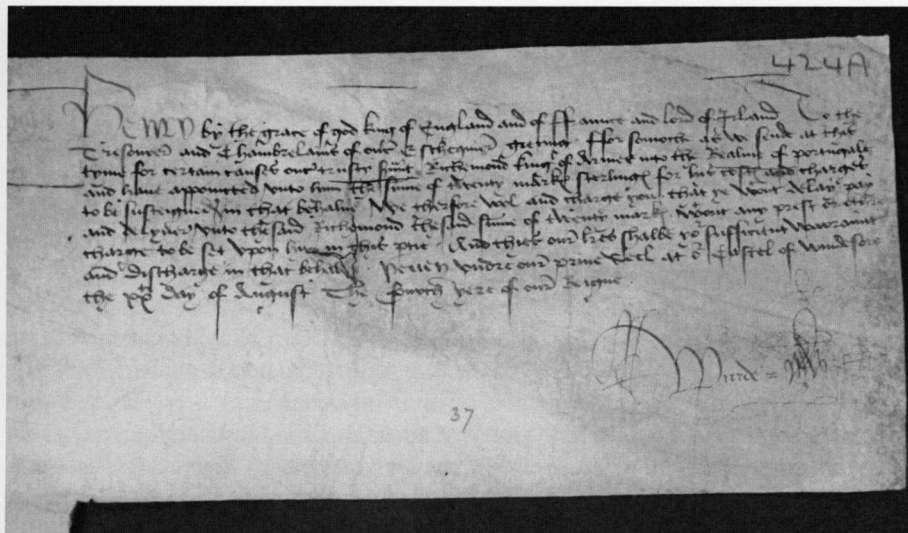 424A
Henry by the grace of god king of England and of ffraunce and lord of Irland To the
Tresourer and Chambrelains of oure Eschequier greting fforsomoche as we sende at this
tyme for certain causes oure trusty Richemond king of Armes unto the Realme of portugale
and have appointed unto him the summe of twenty marks sterlinges for his costs and charges
to be susteigned in that behalve We therfore wol and charge you that ye wout delay pay
and delyver unto thesaid Richemond thesaid summe of twenty marks wout any prest or other
charge to be set upon him in this ptie And thies oure lres shalbe yor sufficient warrant
and discharge in that behalve Yeven undre oure prive Seel at or Castel of Windesore
the xx day of August The fourth yere of oure Reigne
37